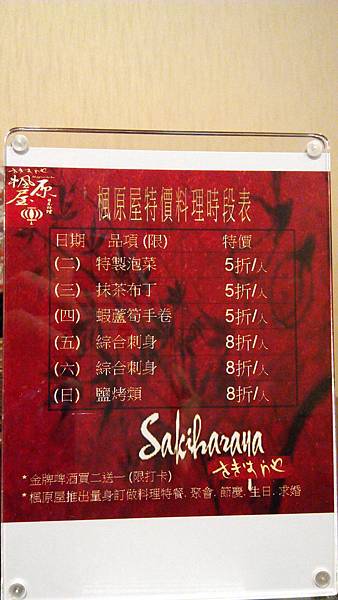 楓原屋
楓原屋特價料理時段表
日期 品項(限) 特價
(二) 特製泡菜 5折/人
(三) 抹茶布丁 5折/人
(四) 蝦蘆筍手卷 5折/人
(五) 綜合刺身 8折/人
(六) 綜合刺身 8折/人
(日) 鹽烤類 8折/人
Sakiharaya
*金牌啤酒買二送一(限打卡)
*楓原屋推出量身訂做料理特餐. 聚會. 節慶. 生日. 求婚